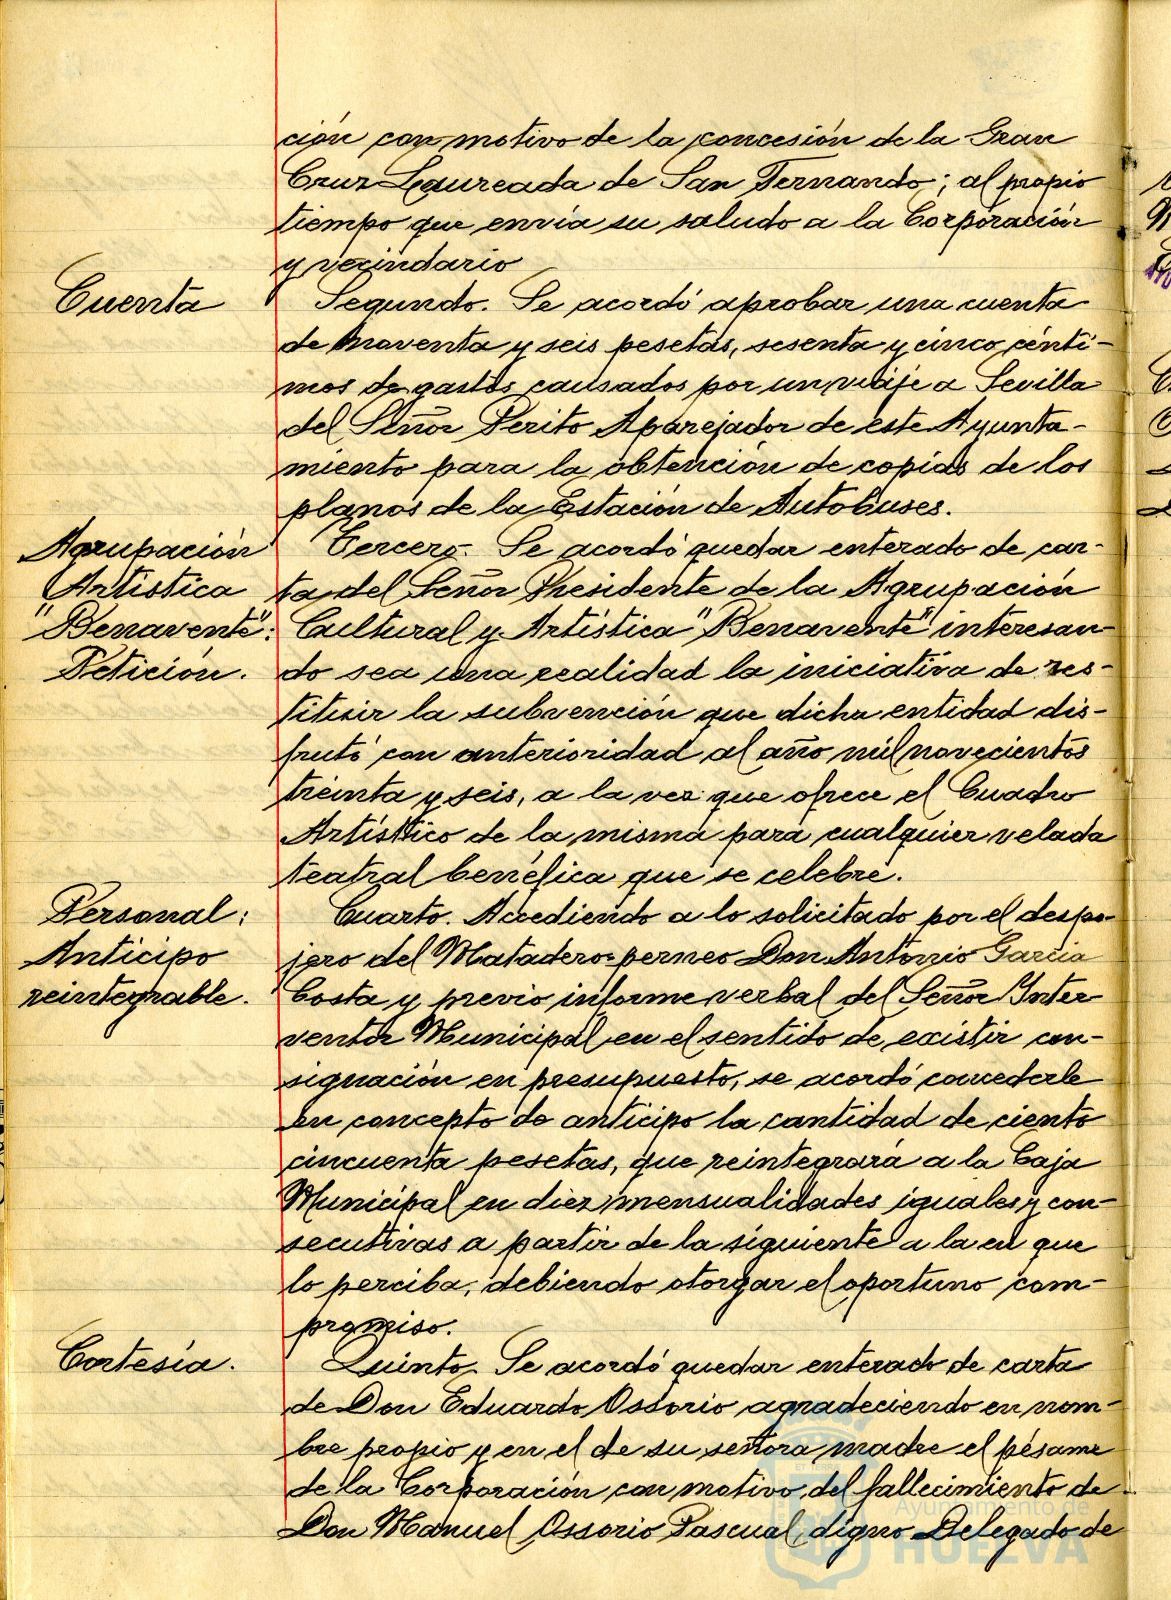 ción con motivo de la concesión de la Gran
Cruz Laureada de San Fernando; al propio
tiempo que envía su saludo a la Corporación
y vecindario
Cuenta
Segundo. Se acordó aprobar una cuenta
de noventa y seis pesetas, sesenta y cinco cénti-
mos de gastos causados por un viaje a Sevilla
del Señor Perito Aparejador de este Ayunta-
miento para la obtención de copias de los
planos de la Estación de Autobuses.
Agrupación
Artística
"Benavente":
Petición.
Tercero. Se acordó quedar enterado de car-
ta del Señor Presidente de la Agrupación
Cultural y Artística "Benavente" interesan-
do sea una realidad la iniciativa de res-
tituir la subvención que dicha entidad dis-
frutó con anterioridad al año mil novecientos
treinta y seis, a la vez que ofrece el Cuadro
Artístico de la misma para cualquier velada
teatral benéfica que se celebre.
Personal:
Anticipo
reintegrable.
Cuarto. Accediendo a lo solicitado por el despo-
jero del Matadero-perneo Don Antonio Garcia
Costa y previo informe verbal del Señor Inter-
ventor Municipal en el sentido de existir con-
signación en presupuesto, se acordó concederle
en concepto de anticipo la cantidad de ciento
cincuenta pesetas, que reintegrará a la Caja
Municipal en diez mensualidades iguales y con-
secutivas a partir de la siguiente a la en que
lo perciba, debiendo otorgar el oportuno com-
promiso.
Cortesía.
Quinto. Se acordó quedar enterado de carta
de Don Eduardo Ossorio agradeciendo en nom-
bre propio y en el de su señora madre el pésame
de la Corporación con motivo del fallecimiento de
Don Manuel Ossorio Pascual, digno Delegado de
Ayuntamiento de
HUELVA